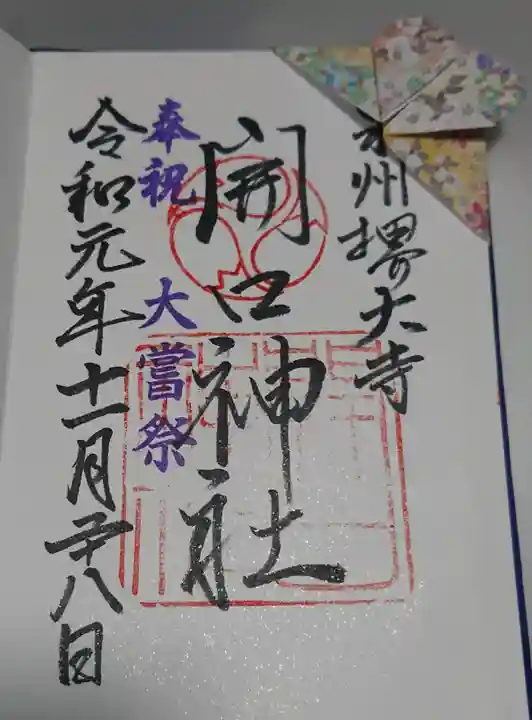 州堺大寺
開口神社
奉祝 大嘗祭
令和元年十一月廿八日